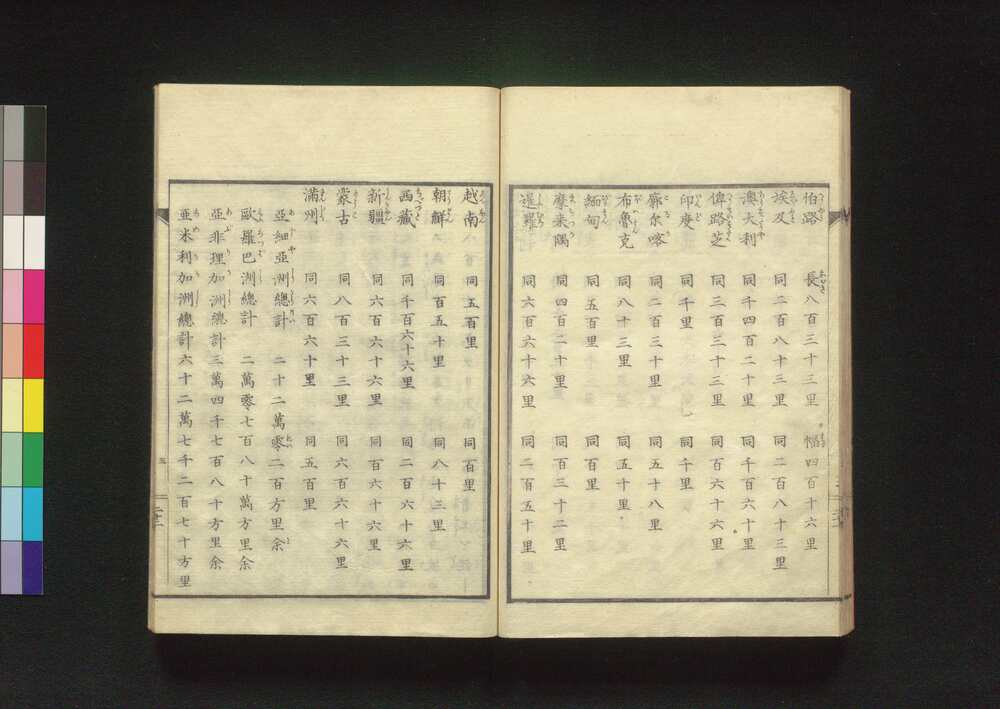 伯路 長八百三十三里 幅四百十六里
埃及 同二百八十三里 同二百八十三里
澳大利 同千四百二十里 同千百六十里
俾路芝 同三百三十三里 同百六十六里
印度 同千里 同千里
廓尔喀 同二百三十里 同五十八里
布魯克 同八十三里 同五十里
緬甸 同五百里 同百里
麼来隅 同四百二十里 同百三十二里
暹羅 同六百六十六里 同二百五十里
越南 同五百里 同百里
朝鮮 同百五十里 同八十三里
西藏 同千百六十六里 同二百六十六里
新疆 同六百六十六里 同百六十六里
蒙古 同八百三十三里 同六百六十六里
滿州 同六百六十里 同五百里
亞細亞洲總計 二十二萬零二百方里余
歐羅巴洲總計 二萬零七百八十萬方里余
亞非理加洲總計三萬四千七百八十方里余
亜米利加洲總計六十二萬七千二百七十方里